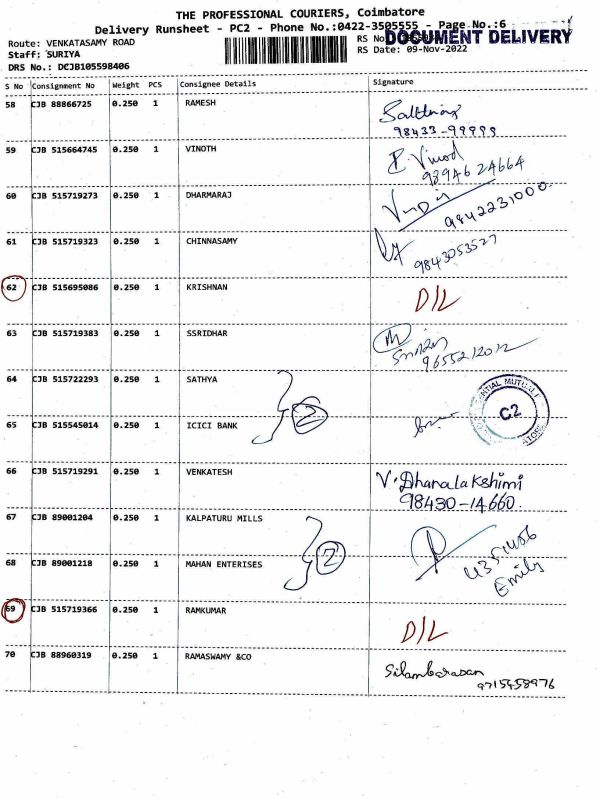 THE PROFESSIONAL COURIERS, Coimbatore
Delivery Runsheet - PC2 - Phone No.:0422-3505555 - Page No.:6
Route: VENKATASAMY ROAD
RS No
DOCUMENT DELIVERY
Staff: SURIYA
RS Date: 09-Nov-2022
DRS No.: DCJB105598406
S No Consignment No Weight PCS Consignee Details Signature
58 CJB 88866725 0.250 1 RAMESH
98433-99999
59 CJB 515664745 0.250 1 VINOTH
Vinod
9894624664
60 CJB 515719273 0.250 1 DHARMARAJ
9842231000
61 CJB 515719323 0.250 1 CHINNASAMY
9843053527
62 CJB 515695086 0.250 1 KRISHNAN D/L
63 CJB 515719383 0.250 1 SSRIDHAR
9655212012
64 CJB 515722293 0.250 1 SATHYA
2
C2
65 CJB 515545014 0.250 1 ICICI BANK
66 CJB 515719291 0.250 1 VENKATESH V. Dhanalakshimi
98430-14660.
67 CJB 89001204 0.250 1 KALPATURU MILLS
2
4351406
68 CJB 89001218 0.250 1 MAHAN ENTERISES
Emily
69 CJB 515719366 0.250 1 RAMKUMAR D/L
70 CJB 88960319 0.250 1 RAMASWAMY &CO Silambarasan
9715458976